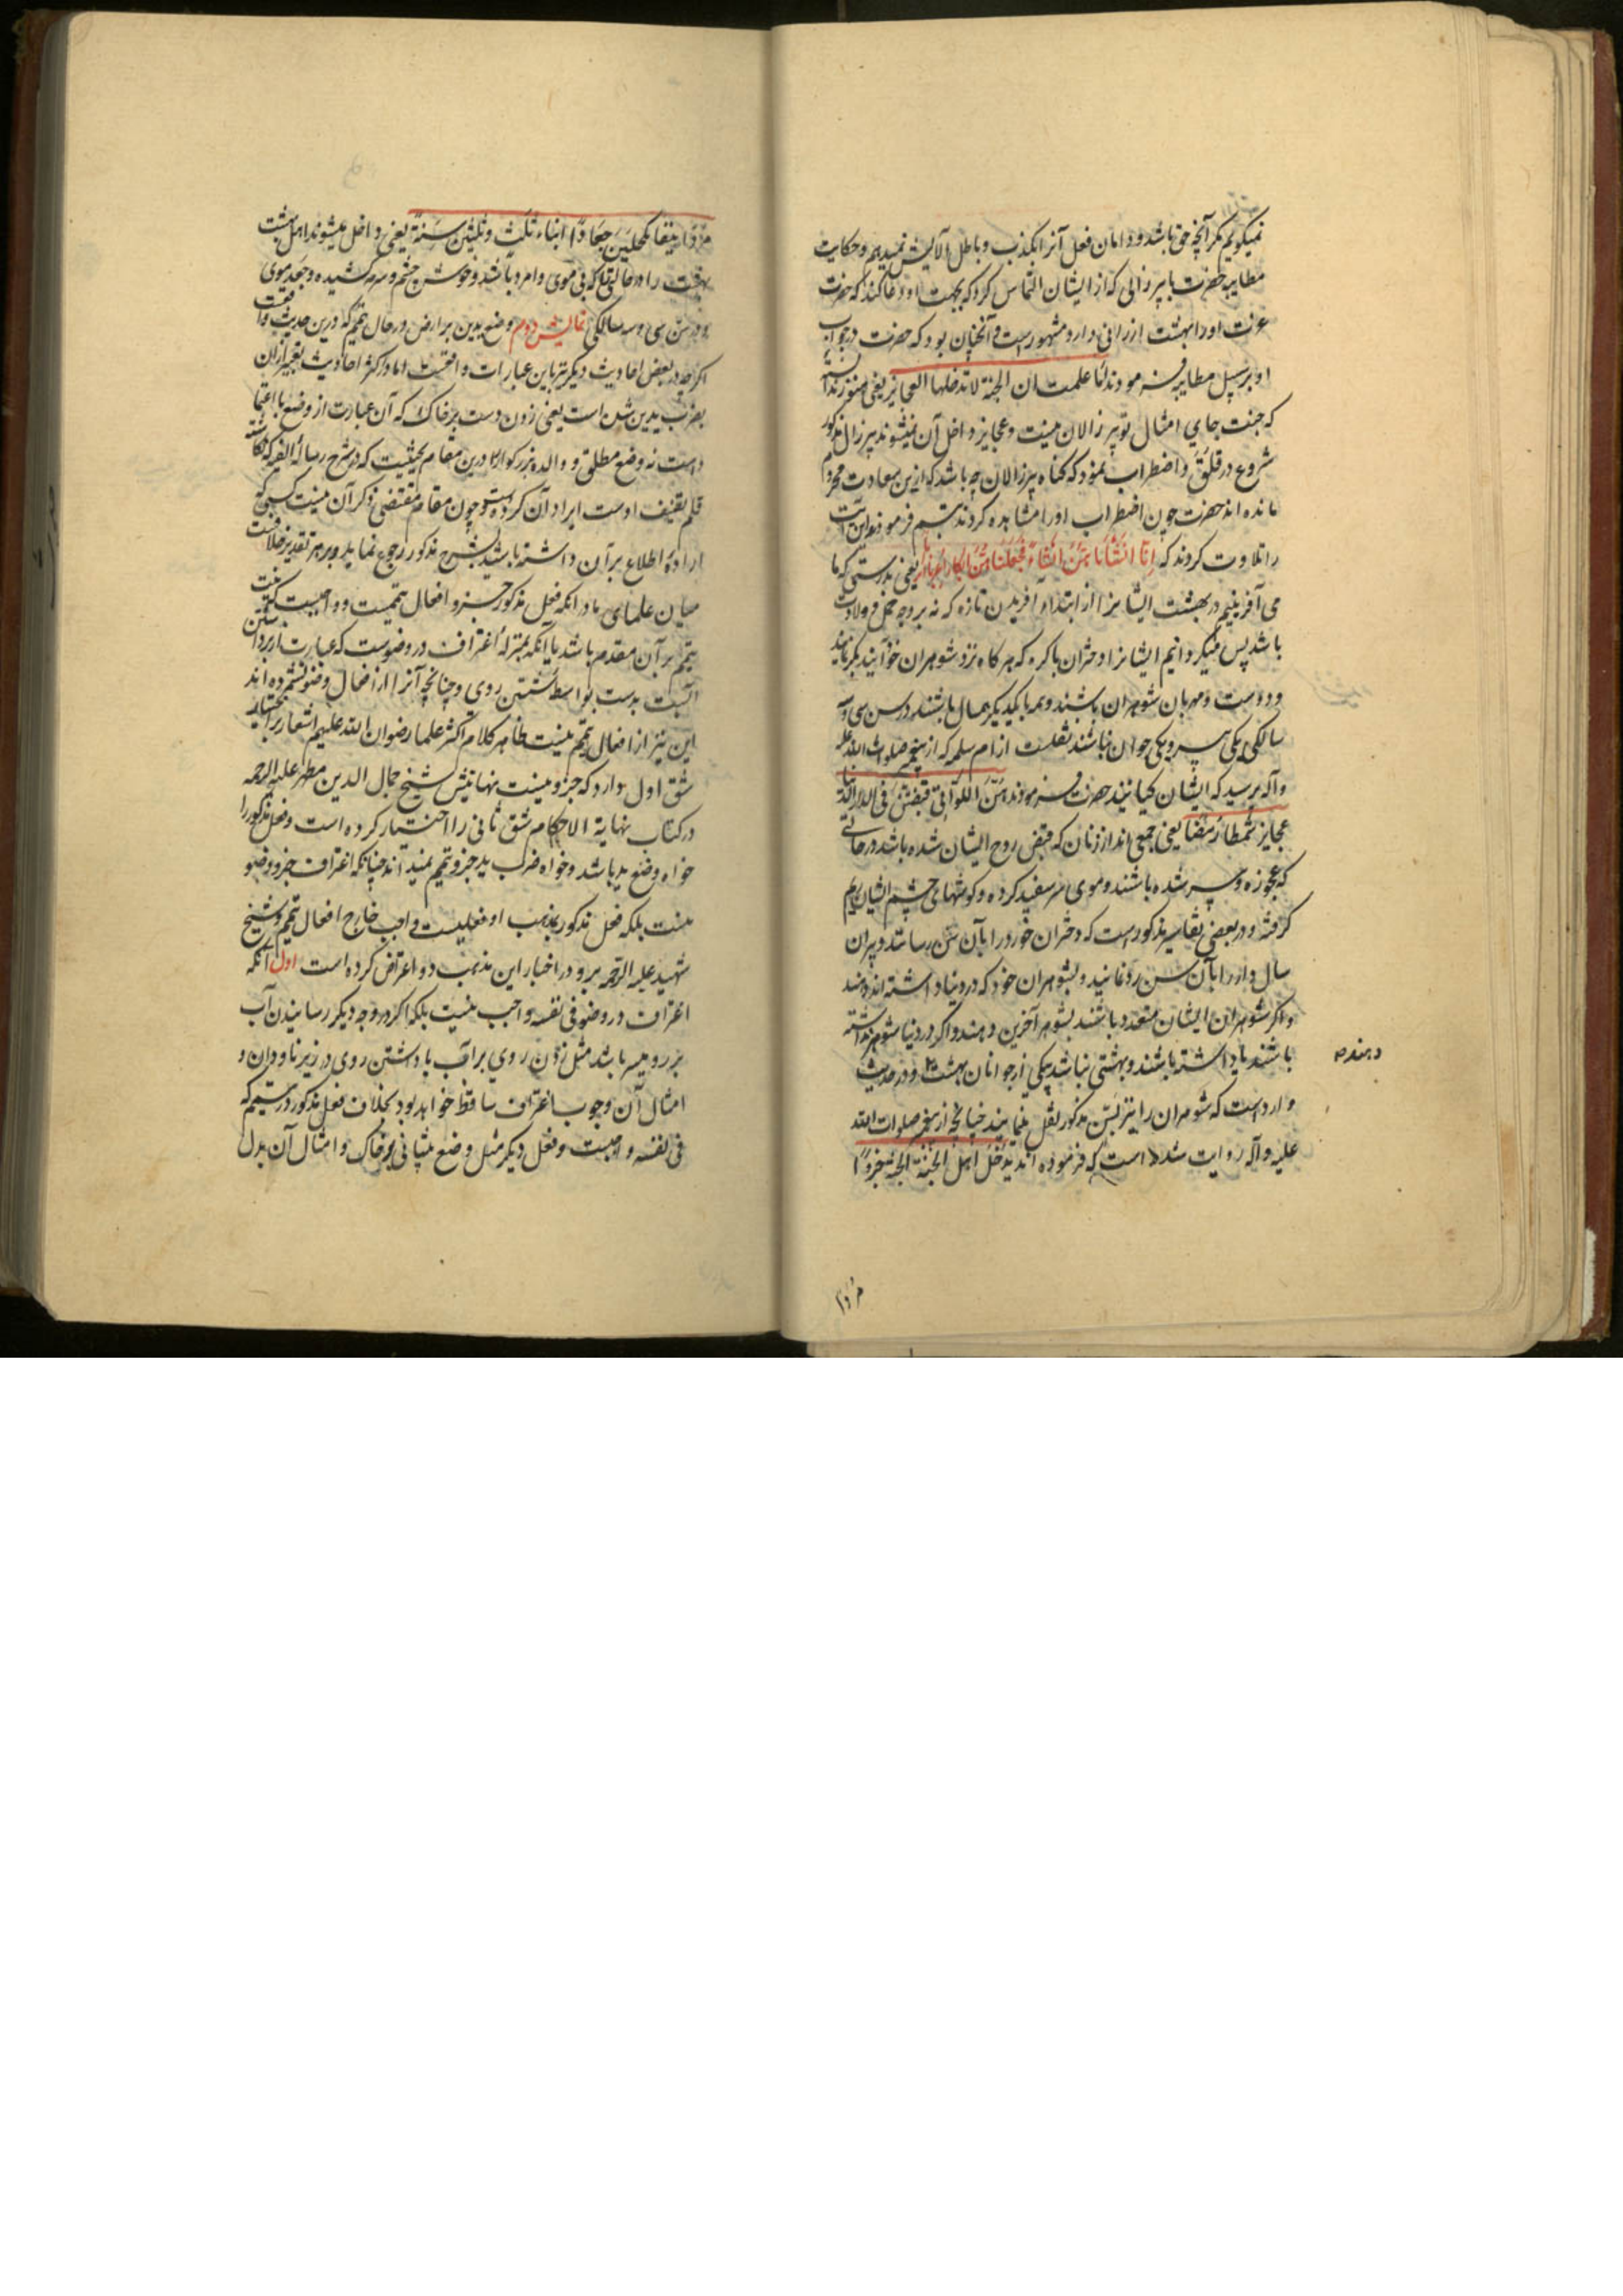 نمیکویم مکر آنچه حق باشد و دامان فعل آنرا بکذب و باطل آلایش نمیدهم و حکایت
مطایبه حضرت با پیرزالی که از ایشان التماس کرد که بجهت او دعا کنند که حضرت
عزت او را بهشت ارزانی دارد مشهورست و آنچنان بود که حضرت در جواب
او بر سبیل مطایبه فرمودند اما علمت ان الجنة لا تدخلها العجایز یعنی هنوز ندانسته
که جنت جای امثال تو پیر زالان نیست و عجایز داخل آن نمیشوند پیرزال مذکور
شروع در قلق و اضطراب نمود که کناه پیرزالان چه باشد که ازین سعادت محروم
مانده اند حضرت چون اضطراب او را مشاهده کردند تبسم فرمودند و این آیت
را تلاوت کردند که اِنّا اَنشَأناهُنَّ اِنشاءً فَجَعَلناهُنَّ اَبکاراً عُرُباً اَتراباً یعنی بدرستی که ما
می آفرینیم در بهشت ایشانرا از ابتداء آفریدن تازه که نه بر وجه حمل و ولادت
باشد پس میکردانیم ایشانرا دختران باکره که هر کاه نزد شوهران خود آیند بکر نمایند
و دوست و مهربان شوهران باشند و همه با یکدیکر همسال باشند در سن سی و سه
سالکی یکی پیر و یکی جوان نباشند نقلست از ام سلمه که از پیغمبر صلوات الله علیه
وآله پرسید که ایشان کیانند حضرت فرمودند هُنَّ اللَّوَاتِی قُبِضْنَ فی الدار الدنیا
عجایز شمطا رمصا یعنی جمعی اند از زنان که قبض روح ایشان شده باشد در حالتی
که عجوزه و پیر شده باشند و موی سر سفید کرده و کوشهای چشم ایشان رم
کرفته و در بعضی تفاسیر مذکورست که دختران خورد را بآن سن رسانند و پیران
سال دار را بآن سن رد نمایند و بشوهران خود که در دنیا داشته اند دهند
و اکر شوهران ایشان متعدد باشند بشوهر آخرین دهند و اکر در دنیا شوهر نداشته
باشند یا داشته باشند و بهشتی نباشد بیکی از جوانان بهشت و در حدیث
دهند
وارد است که شوهران را نیز بسن مذکور نقل نمایند چنانچه از پیغمبر صلوات الله
علیه وآله روایت شده است که فرموده اند یدخل اهل الجنة الجنة جردا
مردا
مردا بیضا مکحلین جعادا ابناء ثلث وثلثین سنة یعنی داخل میشوند اهل بهشت
بهشت را در حالتی که بی موی و امرد باشند و خوش چشم و سرمه کشیده و جعد موی
و در سن سی و سه سالکی نمایش دوم وضع یدین بر ارض در حال تیمم که درین حدیث واقعست
اکرچه در بعض احادیث دیکر نیز باین عبارات واقعست اما در اکثر احادیث تعبیر از آن
بضرب یدین شده است یعنی زدن دست بر خاک که آن عبارت از وضع با اعتماد
دست نه وضع مطلق و والد بزرکوارم درین مقام بحثیست که در شرح رساله الفیه که نکاشته
قلم تصنیف اوست ایراد آن کرده است و چون مقام مقتضی ذکر آن نیست کسی که
اراده اطلاع بر آن داشته باشد بشرح مذکور رجوع نماید و بر هر تقدیر خلافست
میان علمای ما در آنکه فعل مذکور جزو افعال تیممست و واجبست که نیت
تیمم بر آن مقدم باشد یا آنکه بمنزله اغتراف در وضوست که عبارت از برداشتن
آبست بدست بواسطه شستن روی و چنانچه آنرا از افعال وضو نشمرده اند
این نیز از افعال تیمم نیست ظاهر کلام اکثر علما رضوان الله علیهم اشعار بر اختیار
شق اول دارد که جزویست نهایتش شیخ جمال الدین مطهر علیه الرحمه
در کتاب نهایة الاحکام شق ثانی را اختیار کرده است و فعل مذکور را
خواه وضع ید باشد و خواه ضرب ید جزو تیمم نمیداند چنانکه اغتراف جزو وضو
نیست بلکه فعل مذکور بمذهب او فعلیست واجب خارج افعال تیمم و شیخ
شهید علیه الرحمه برو در اختیار این مذهب دو اعتراض کرده است اول آنکه
اغتراف در وضو فی نفسه واجب نیست بلکه اکر در وجه دیکر رسانیدن آب
بر رو میسر باشد مثل زدن روی بر آب یا داشتن روی در زیر ناودان و
امثال آن وجوب اغتراف ساقط خواهد بود بخلاف فعل مذکور در تیمم که
فی نفسه واجبست و فعل دیکر مثل وضع پیشانی بر خاک و امثال آن بدل